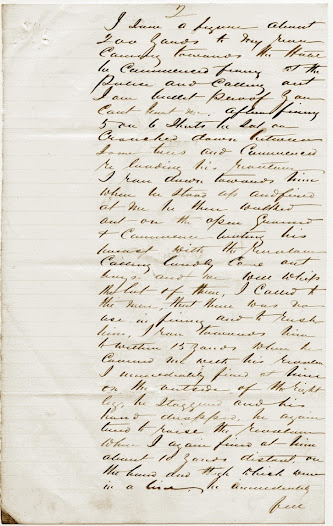 2
I saw a figure about
200 yards to my rear
Coming towards the House
he Commenced firing at the
Police and Calling out
I am bullet proof you
Cant hurt me. after firing
5 or 6 Shots he
Crouched down between
Some trees and Commenced
re loading his revolver
I ran down towards him
when he stood up and fired
at me he then walked
out on the open Ground
& Commenced beating his
breast with the Revolver
Calling loudly Come out
boys and we will whip
the lot of them, I Called to
the men, that there was no
use in firing and to rush
him, I ran towards him
to within 15 yards when he
Covered me with his revolver
I immediately fired at him
on the outside of the right
leg, he staggered and his
hand dropped, he again
tried to raise the revolver
when I again fired at him
about 10 yards distant on
the hand and thigh which were
in a line, he immediately
fell